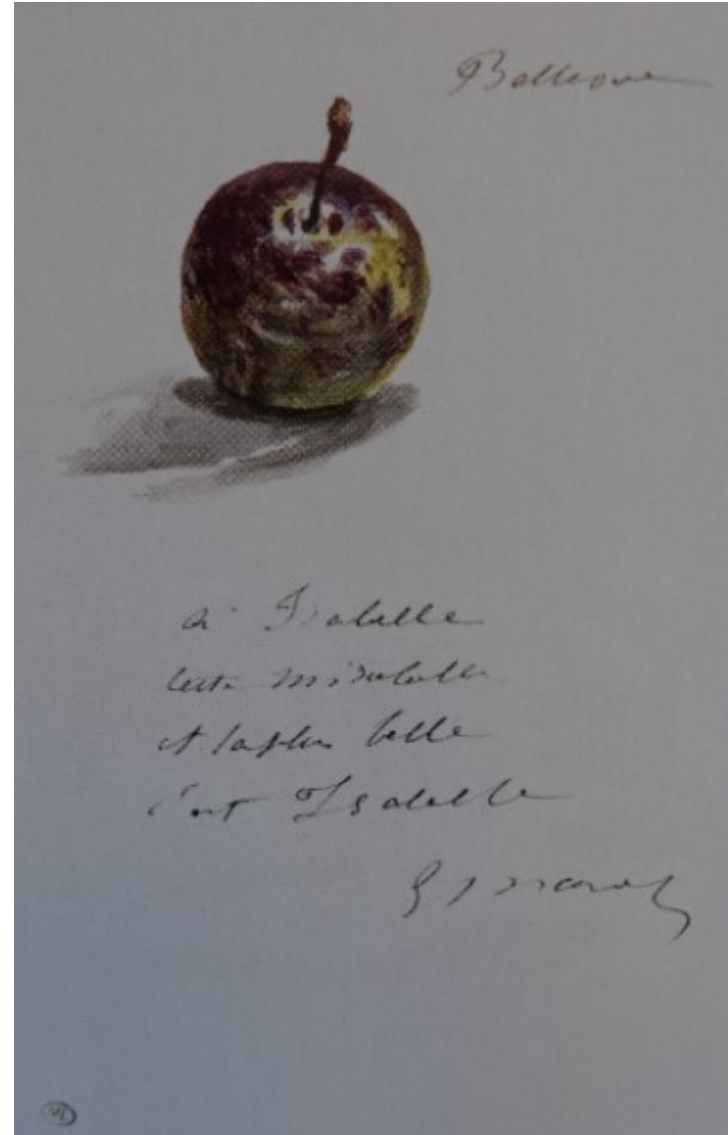 Bellevue
à Isabelle
cette mirabelle
et la plus belle
c'est Isabelle
E Manet